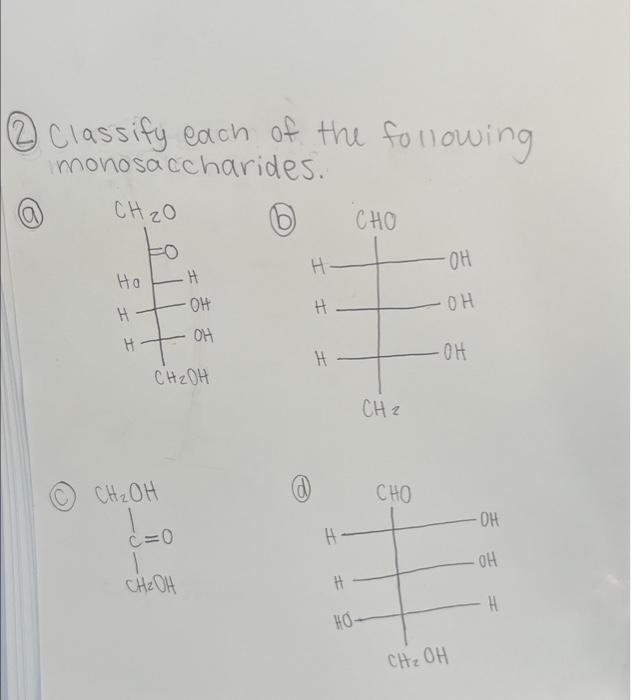 ② Classify each of the following
monosaccharides.
ⓐ CH2O
=O
Ho H
H OH
H OH
CH2OH
ⓑ CHO
H OH
H OH
H OH
CH2
ⓒ CH2OH
C=O
CH2OH
ⓓ CHO
H OH
H OH
HO H
CH2OH